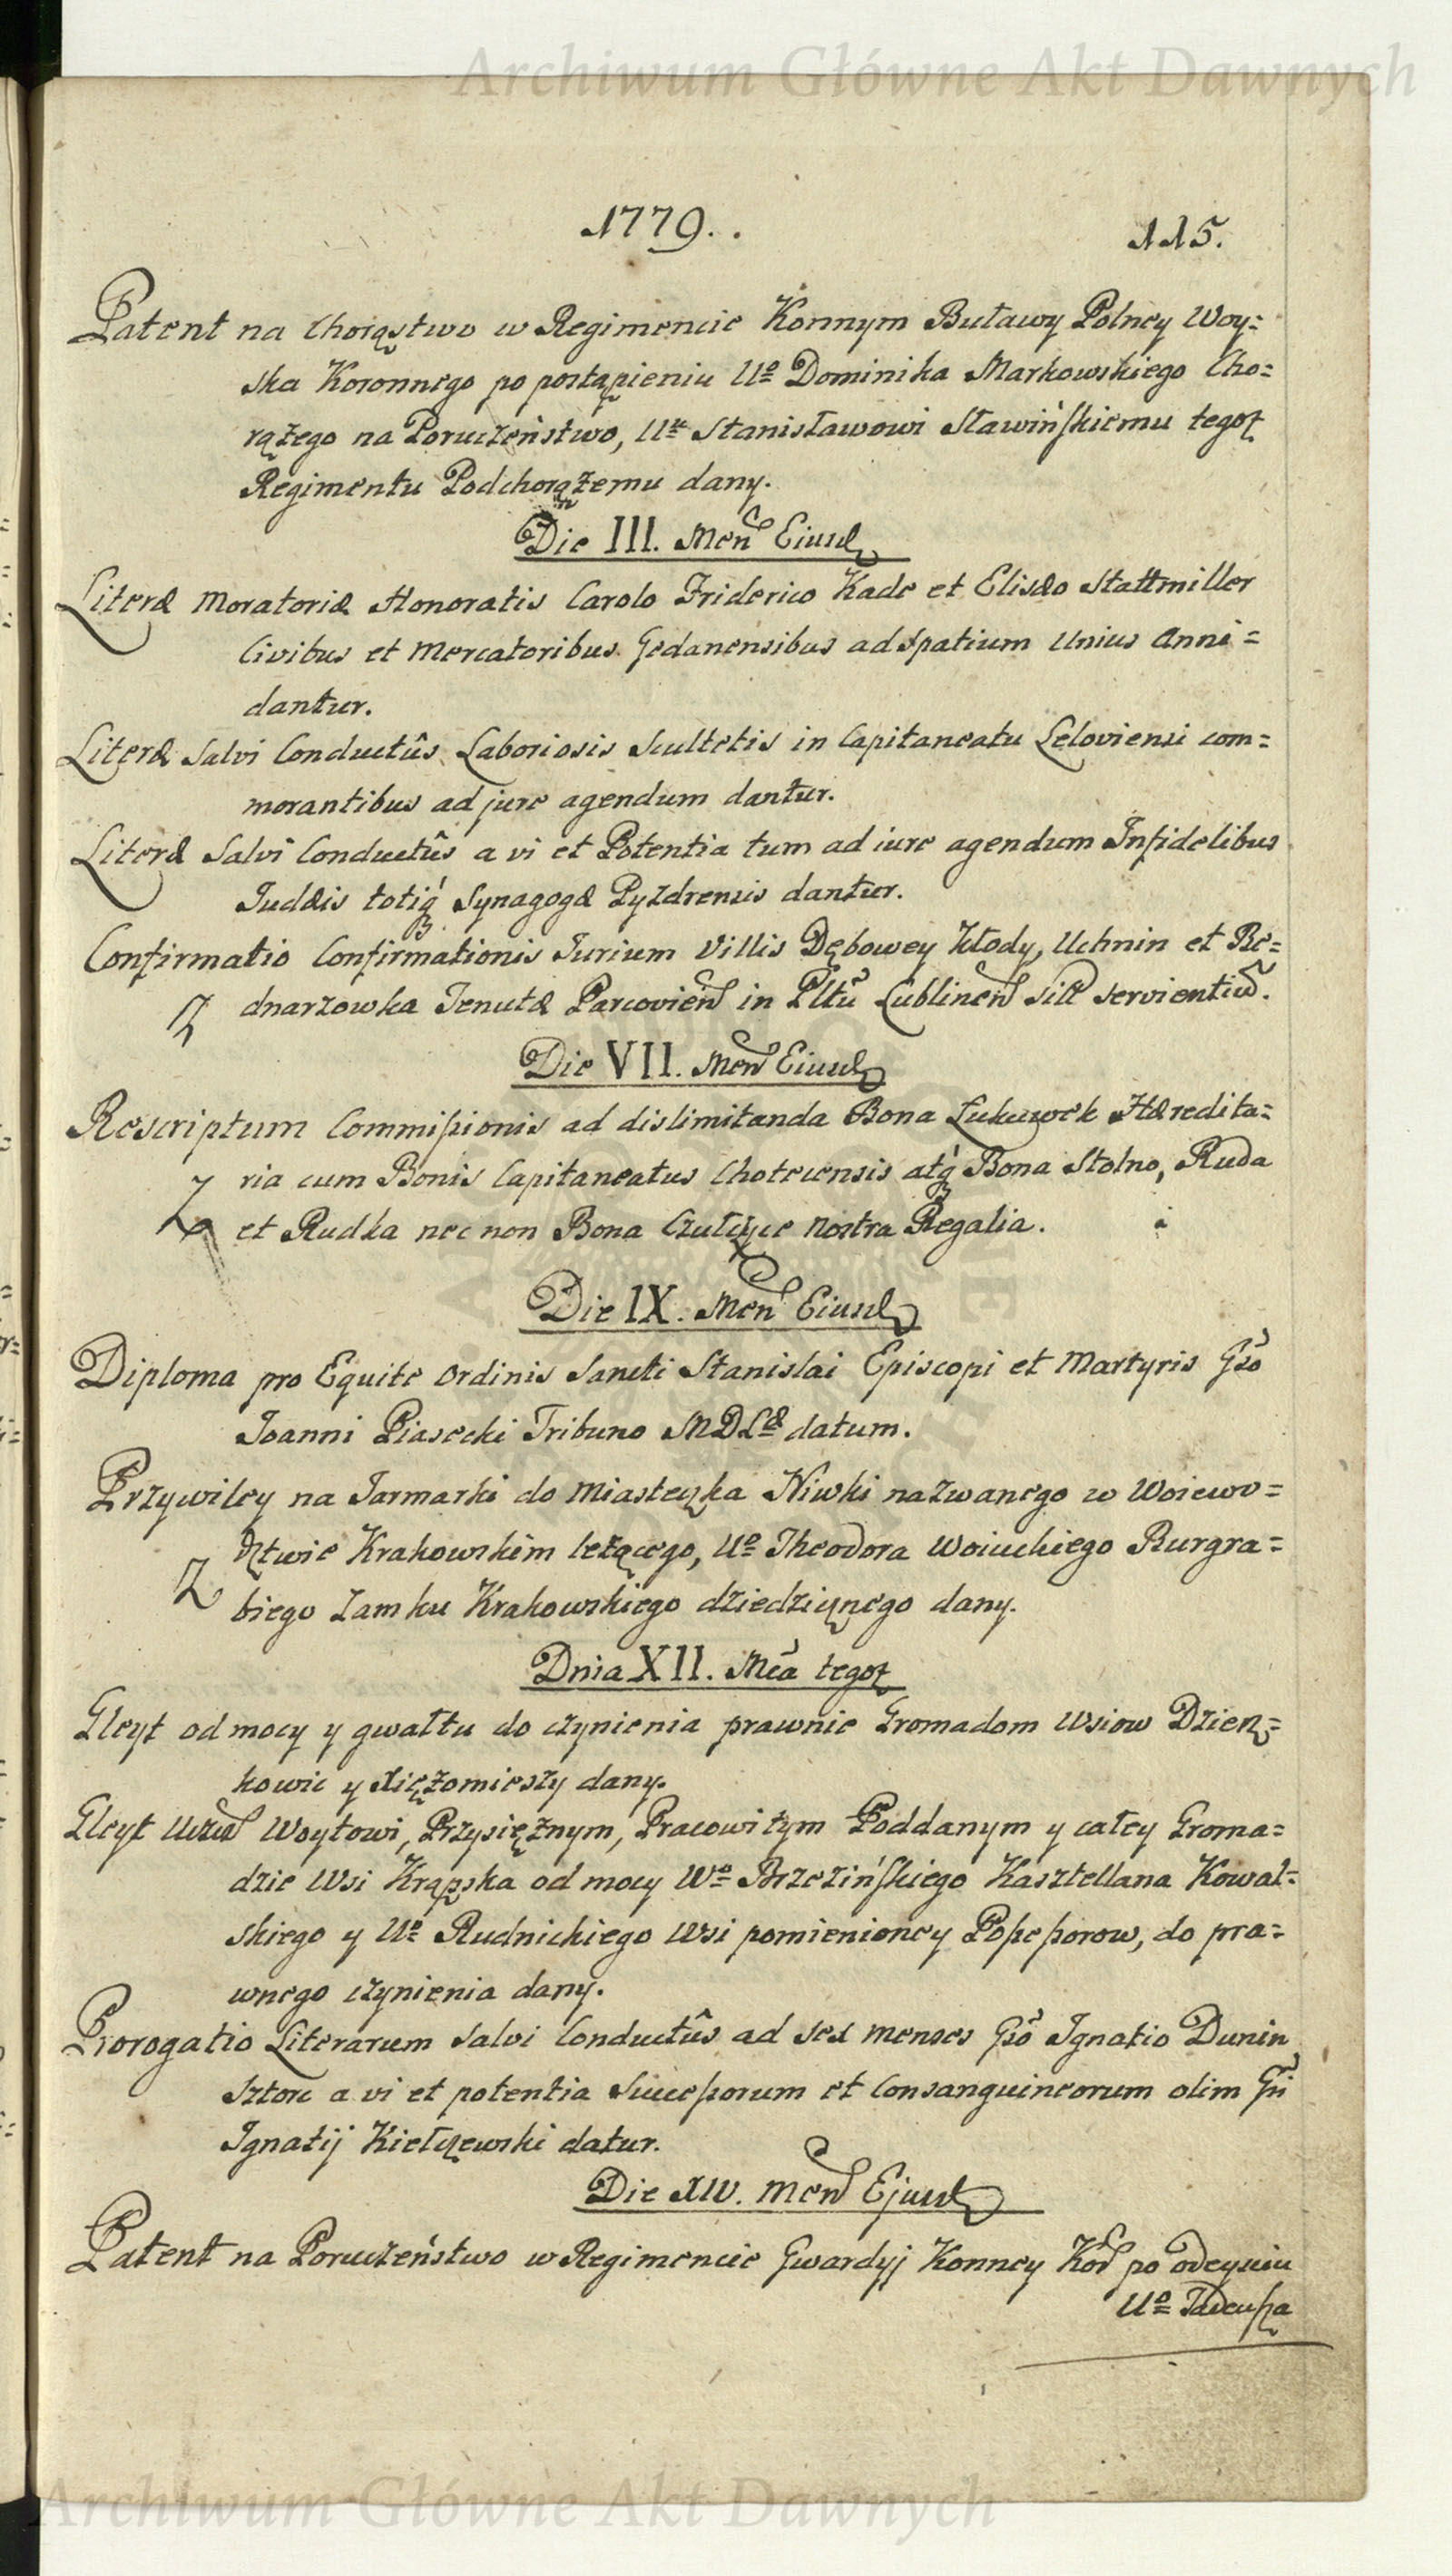 Archiwum Główne Akt Dawnych
1779..
115.
Patent na Chorąstwo w Regimencie Konnym Buławy Polney Woy=
ska Koronnego po postąpieniu Uº Dominika Markowskiego Cho=
rążego na Poruczeństwo, Uu Stanisławowi Sławińskiemu tegoż
Regimentu Podchorążemu dany.
Die III. Men Eiusd
Literæ Moratoriæ Honoratis Carolo Friderico Kade et Elisæo Stattmiller
Civibus et Mercatoribus Gedanensibus ad Spatium Unius Anni=
dantur.
Literæ Salvi Conductûs Laboriosis Scultetis in Capitaneatu Leloviensi com=
morantibus ad jure agendum dantur.
Literæ Salvi Conductûs a vi et Potentia tum ad iure agendum Infidelibus
Judæis totiq Synagogæ Pyzdrensis dantur.
Confirmatio Confirmationis Jurium Villis Dębowey Kłody, Uchnin et Be=
dnarzowka Tenutæ Parcovien in Płtu Lublinen sitt servientiu.
Die VII. Men Eiusd
Rescriptum Commissionis ad dislimitanda Bona Łukuwek Hæredita=
ria cum Bonis Capitaneatus Chotecensis atq Bona Stolno, Ruda
et Rudka nec non Bona Czułczyce Nostra Regalia.
Die IX. Men Eiusd
Diploma pro Equite Ordinis Sancti Stanislai Episcopi et Martyris Gso
Joanni Piasecki Tribuno MDLæ datum.
Przywiley na Jarmarki do Miasteczka Niwki nazwanego w Woiewo=
dztwie Krakowskim leżącego, Uº Theodora Woiuckiego Burgra=
biego Zamku Krakowskiego dziedzicznego dany.
Dnia XII. Mca tegoż
Gleyt od mocy y gwałtu do czynienia prawnie Gromadom Wsiow Dzien=
kowic y Xiężomieszy dany.
Gleyt Woytowi, Przysiężnym, Pracowitym Poddanym y całey Groma=
dzie Wsi Krąpska od mocy Wº Brzezińskiego Kasztellana Kowal=
skiego y Uº Rudnickiego Wsi pomienioney Possessorow, do pra=
wnego czynienia dany.
Prorogatio Literarum Salvi Conductûs ad sex menses Gso Ignatio Dunin
Sztorc a vi et potentia Successorum et Consanguineorum olim Gsi
Ignatij Kiełczewski datur.
Die XIV. Men Ejusd
Patent na Poruczeństwo w Regimencie Gwardyj Konney Kor po odeyściu
Uº Tadeusza
Archiwum Główne Akt Dawnych